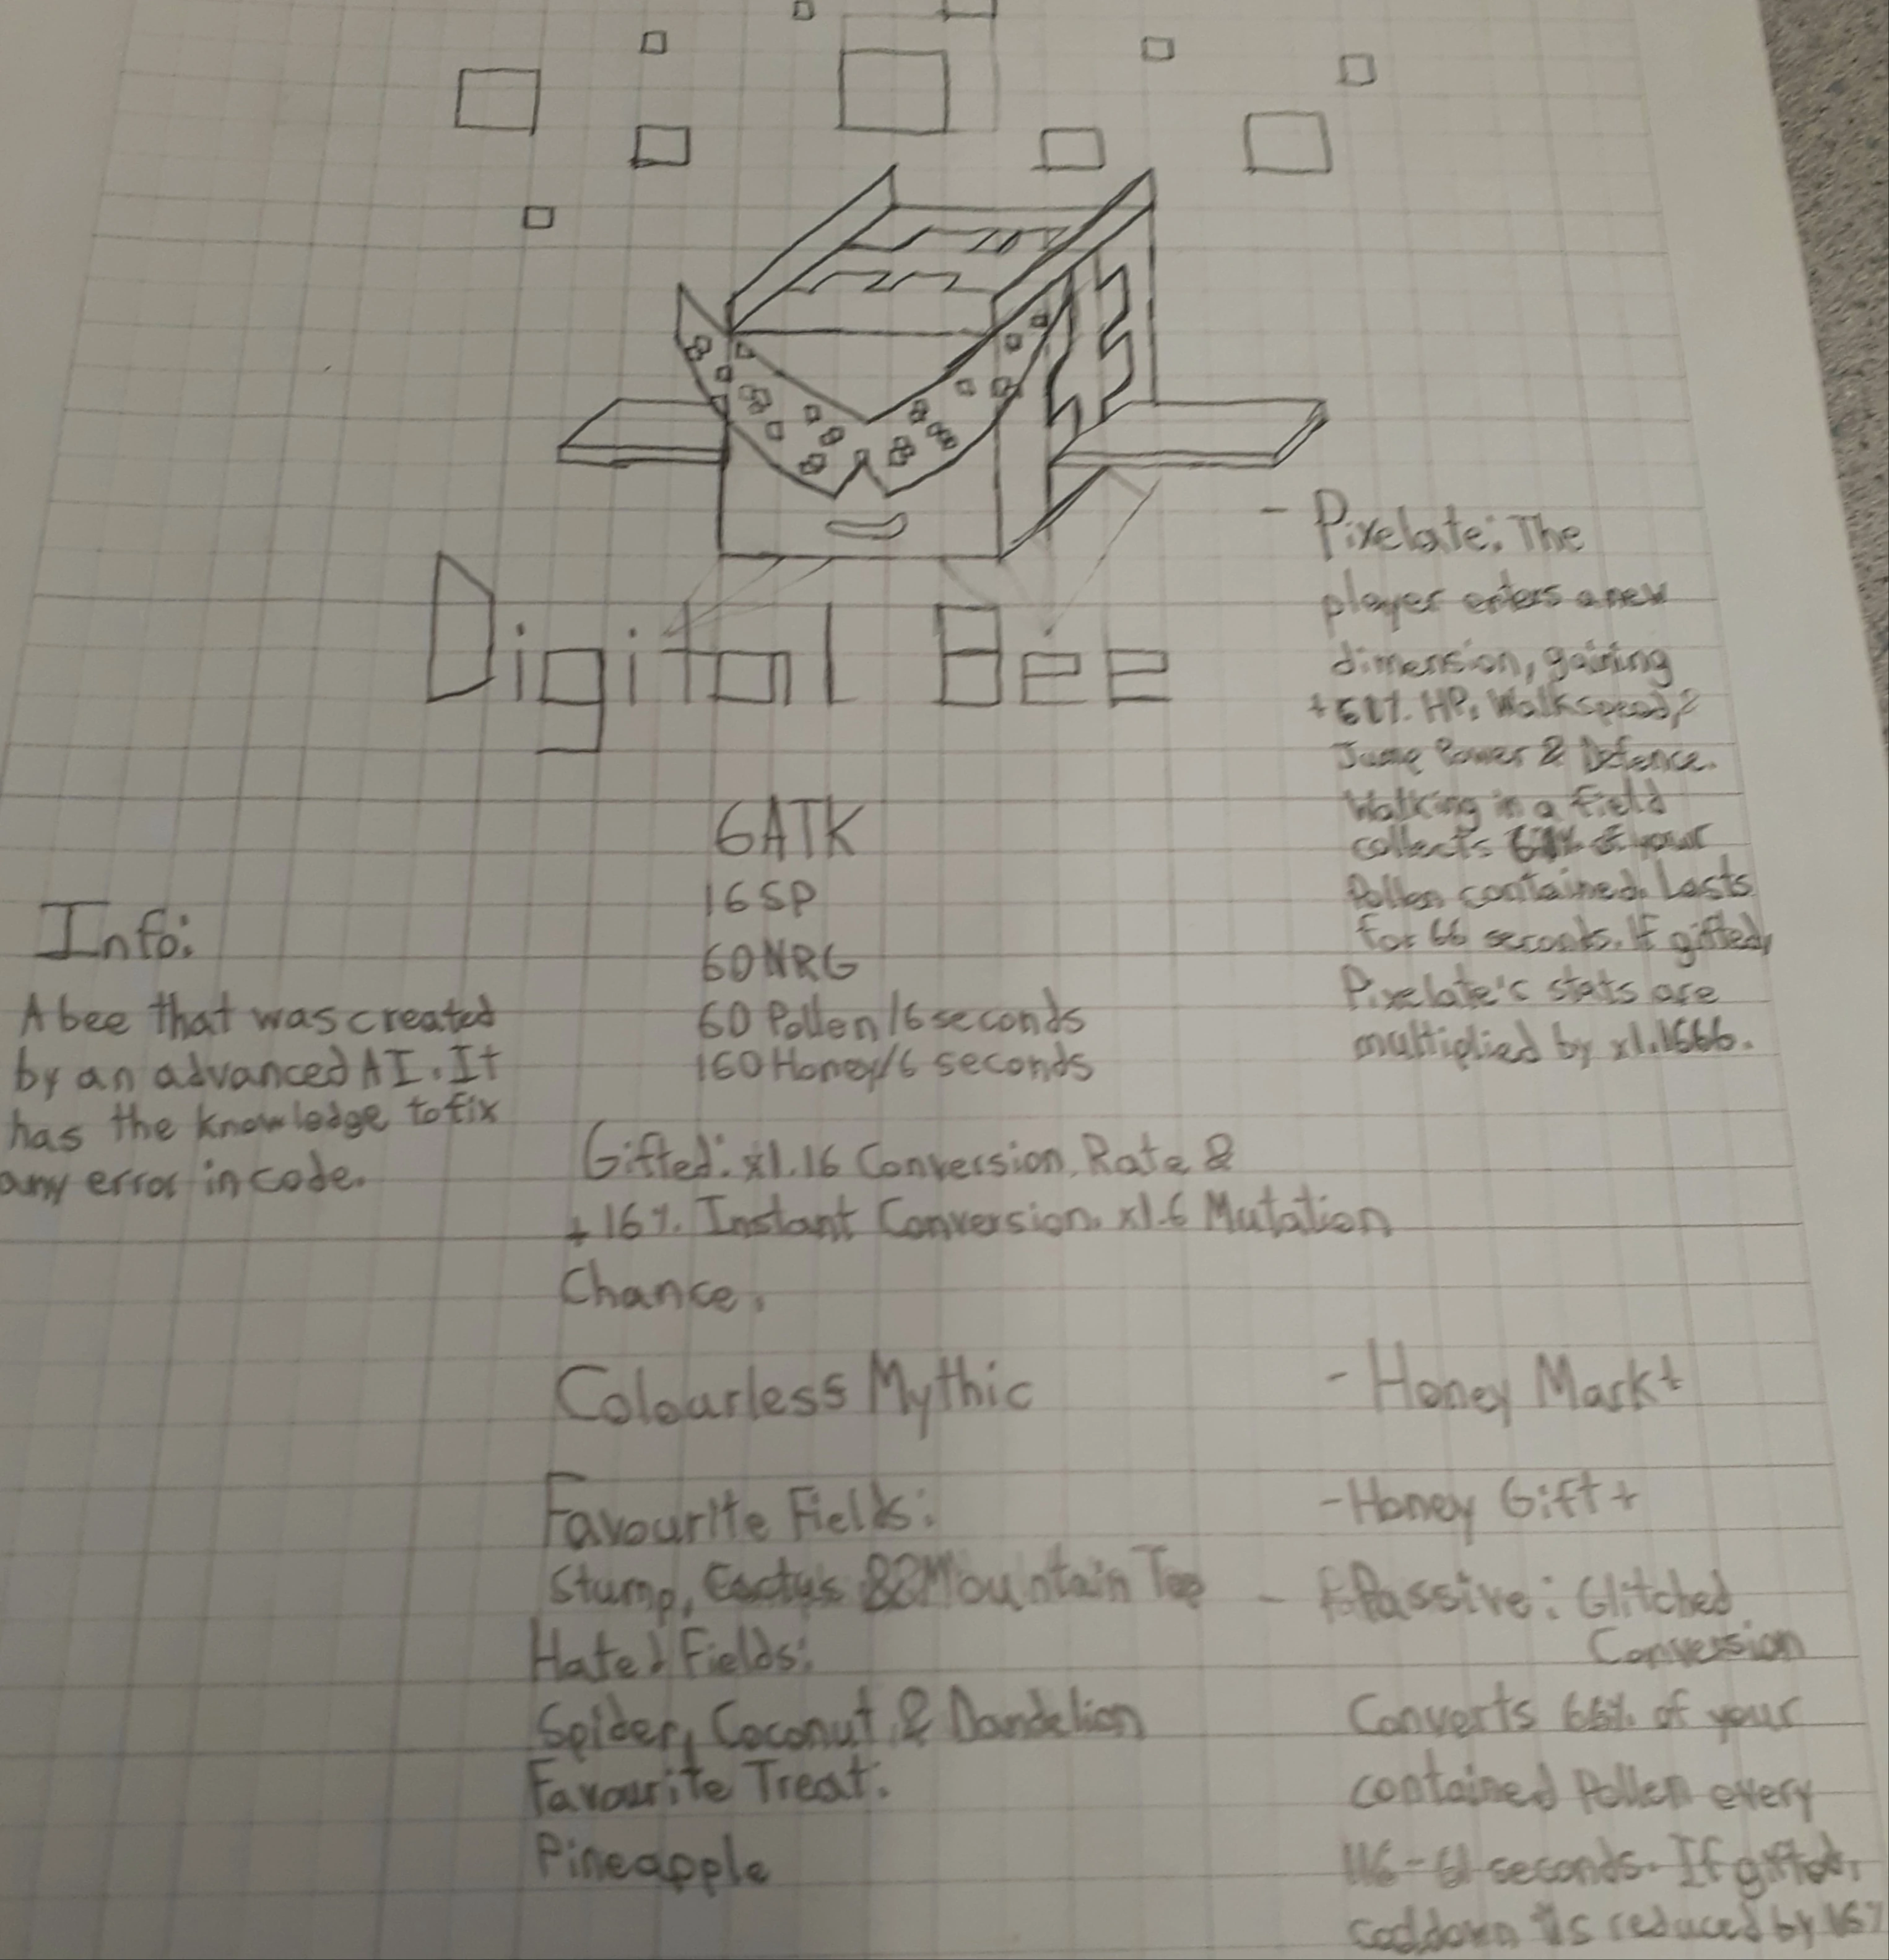 Digital Bee
6ATK
16SP
60NRG
60 Pollen/6 seconds
160 Honey/6 seconds
Info:
A bee that was created
by an advanced AI. It
has the knowledge to fix
any error in code.
Gifted: x1.16 Conversion Rate &
+16% Instant Conversion. x1.6 Mutation
Chance.
Colourless Mythic
Favourite Fields:
Stump, Cactus & Mountain Top
Hated Fields:
Spider, Coconut & Dandelion
Favourite Treat:
Pineapple
- Pixelate: The
player enters a new
dimension, gaining
HP, Walkspeed,
Jump Power & Defence.
Walking in a field
collects of your
Pollen contained. Lasts
for 66 seconds. If gifted,
Pixelate's stats are
multiplied by x1.1666.
- Honey Mark+
- Honey Gift+
- Passive: Glitched
Conversion
Converts 66% of your
contained Pollen every
116-61 seconds. If gifted,
is reduced by 16%